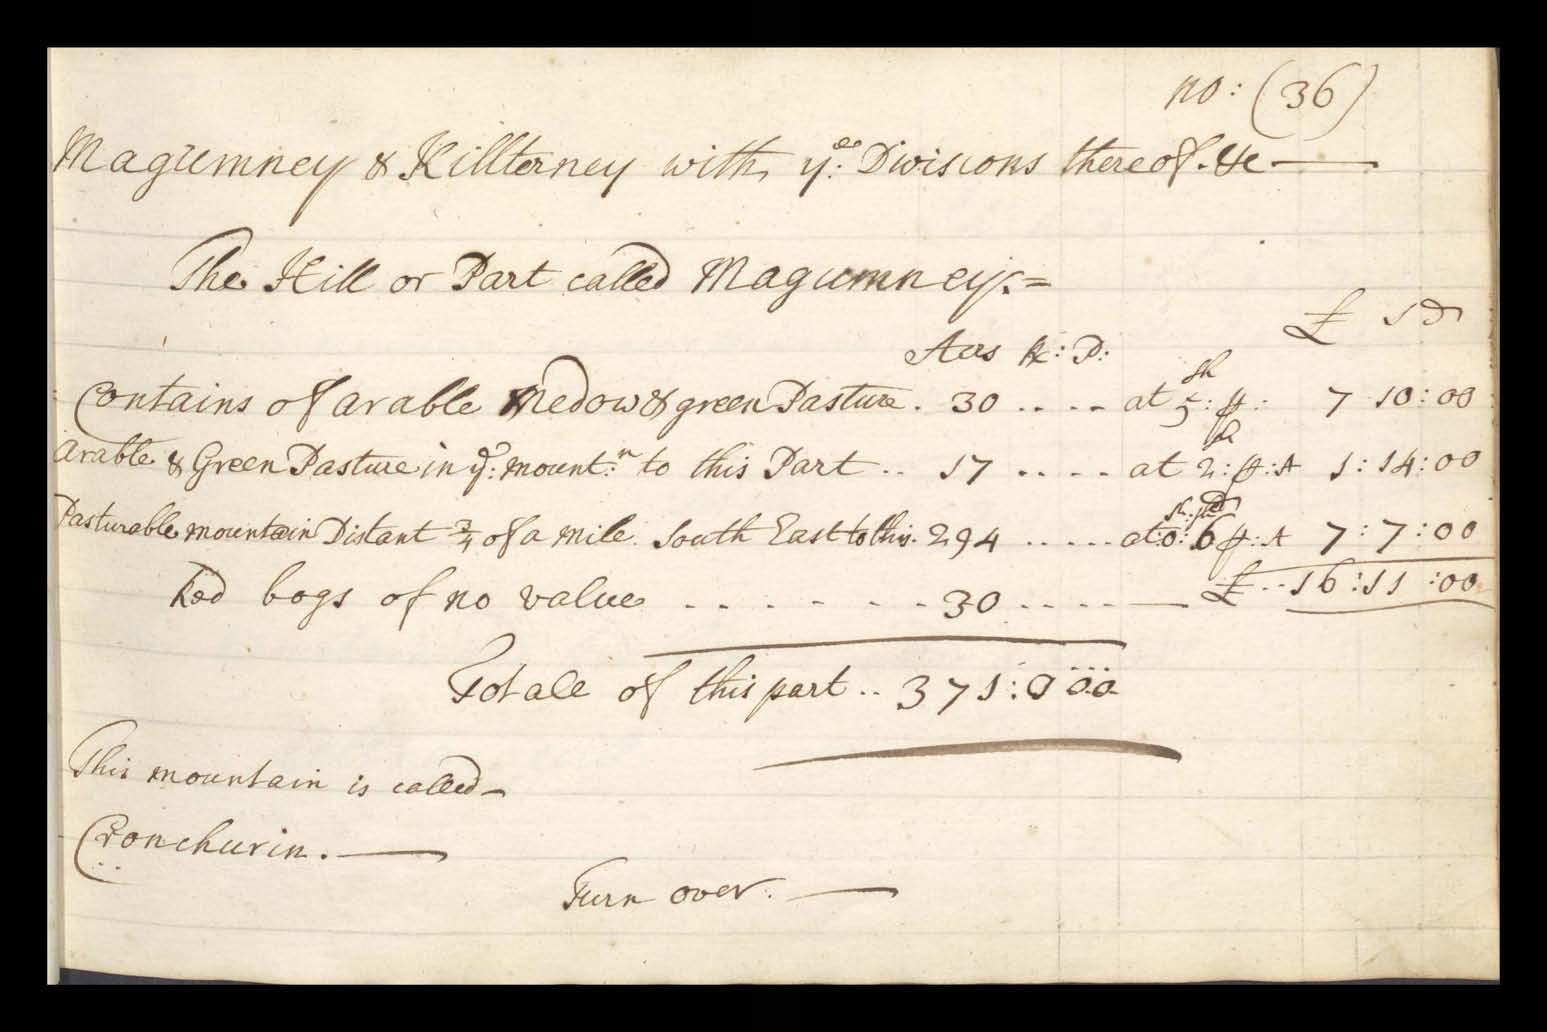 no: (36)
Magumney & Killterney with ye: Divisions thereof. &c
The Hill or Part called Magumney. =
£ s D
Acrs R: P:
Contains of arable Medow & green Pasture . 30 .... at 5sh: p: 7 10:00
Arable & Green Pasture in ye: mount:n to this Part .. 17 .... at 2sh: p: A 1:14:00
Pasturable mountain Distant 3/4 of a mile South East to this. 294 ..... at 0:6 p: A 7:7:00
Red bogs of no value ....... 30 .... £ .. 16:11:00
Totale of this part .. 371:0 00
This mountain is called
Cronchurin.
Turn over.